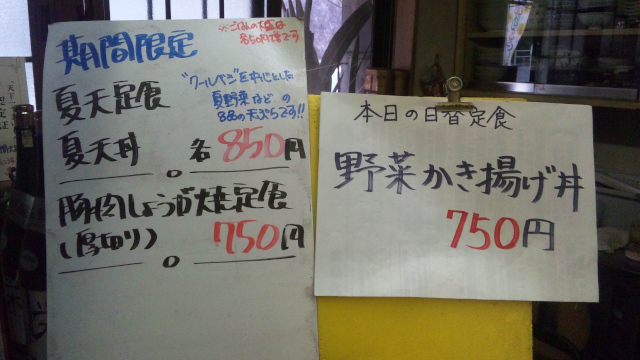 期間限定
※ごはんの大盛は
各50円増です
夏天定食
"クールベジ"を中心とした
夏野菜などの
8品の天ぷらです!!
夏天丼 各850円
豚肉しょうが焼定食
(厚切り) 750円
本日の日替定食
野菜かき揚げ丼
750円